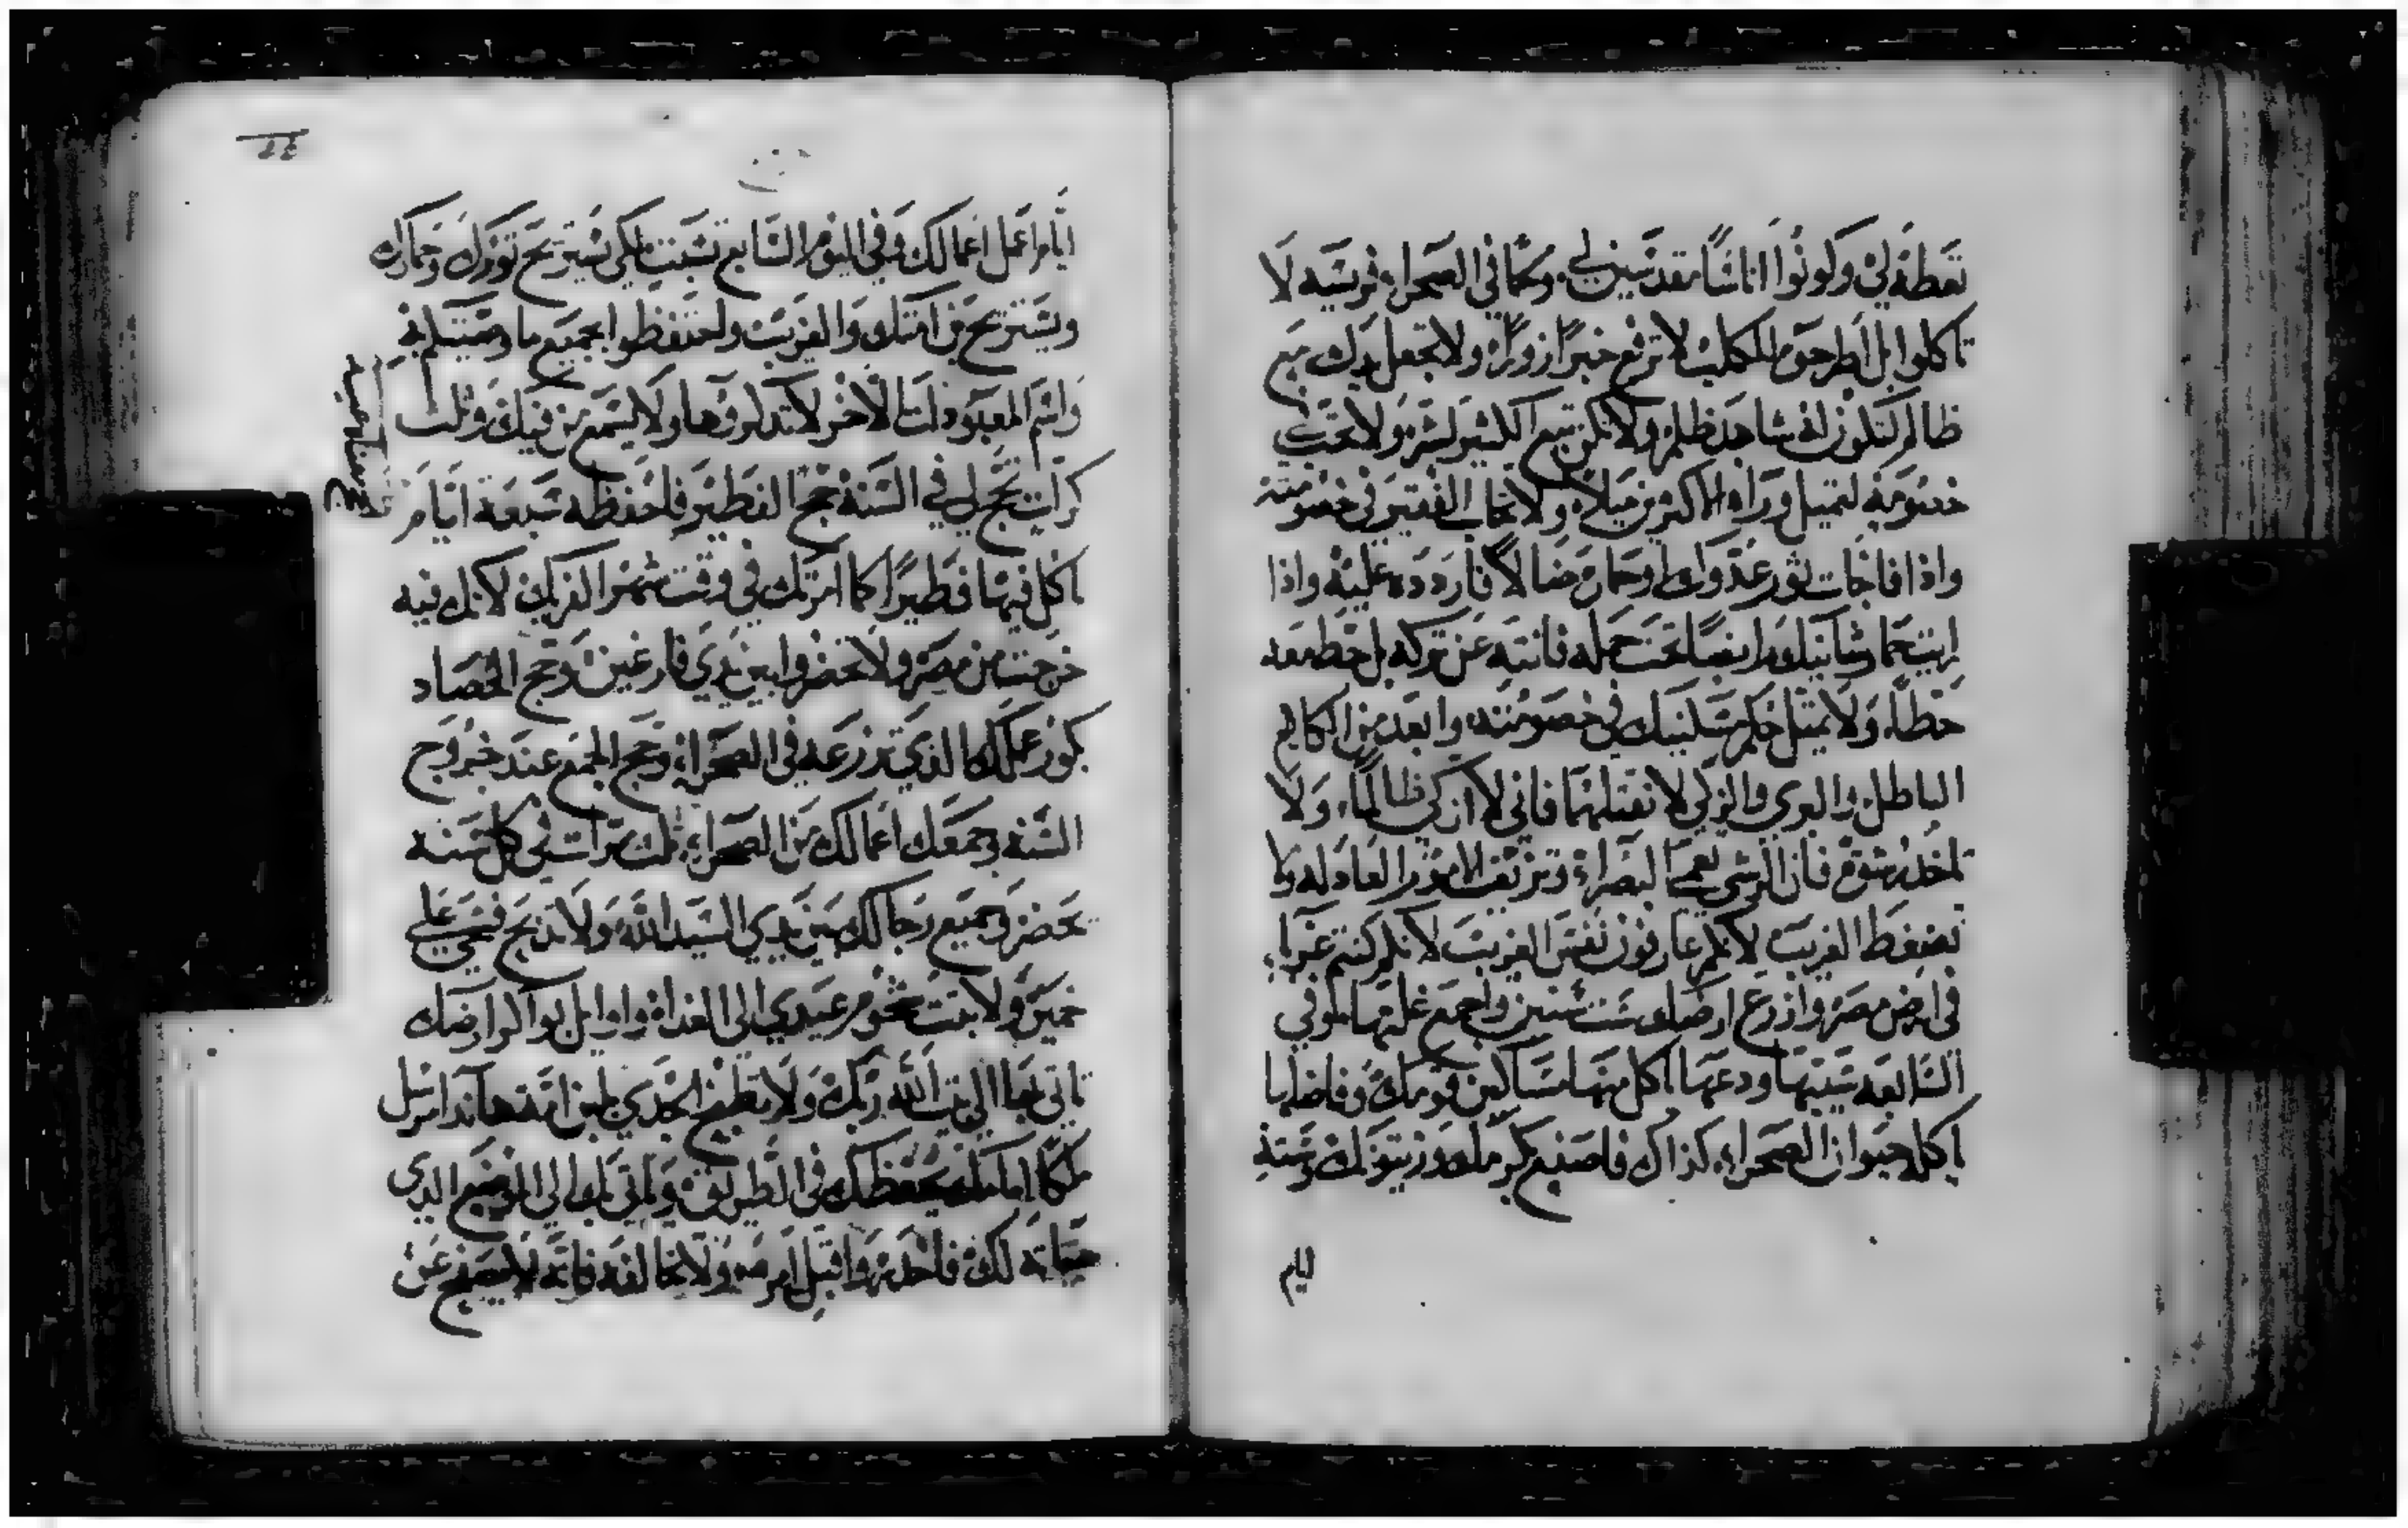 تعطه لي وكونوا اناسًا مقدسين لي ولحمًا في الصحراء فريسه لا
تاكلوا بل أطرحوه للكلب لا ترفع خبرًا زورًا ولا تجعل يدك مع
ظالم لتكون له شاهد ظلم ولا تكن تبع الكثير لشر ولا تجب
خصومة لتميل وراء الاكثر من ميلاً ولا تحاب الفقير في خصومته
واذا فاجات ثور عدوك او حماره ضالاً فاردده عليه واذا
رايت حمار شانيك رابضًا تحت حمله فانتبه عن تركه بل حط معه
حطًا ولا تميل حكم مسكينك في خصومته وابعد من الكلام
الباطل والبري والزكي لا تقتلهما فاني لا ازكي ظالمًا ولا
تاخذ رشوة فان الرشى يعمي البصراء وتزيف الامور العادله ولا
تضغط الغريب لانكم عارفون نفس الغريب لانكم كنتم غرباء
في ارض مصر وازرع ارضك ست سنين واجمع غلتها وفي
السابعه سيبها ودعها ياكل منها مساكين قومك وفاضلها
ياكله حيوان الصحراء كذاك فاصنع بكرمك وزيتونك وستة
ايام
ايام اعمل اعمالك وفي اليوم السابع تسبت لكي يستريح ثورك وحمارك
ويستريح بن امتك والغريب واحتفظوا بجميع ما وصيتكم به
واسم المعبودات الأخر لا تذكروها ولا يسمع من فيك وثلث
كرات تحج لي في السنة حج الفطير فاحفظه سبعة ايام
تاكل فيها فطيرًا كما امرتك في وقت شهر الفريك لانك فيه
خرجت من مصر ولا تحضروا بين يدي فارغين وحج الحصاد
بكور عملك الذي تزرعه في الصحراء وحج الجمع عند خروج
السنه وجمعك أعمالك من الصحراء ثلث مرات في كل سنه
تحضر جميع رجالك بين يدي السيد الله ولا تذبح فسحي علي
خمير ولا يبت شحوم عيدي الى الغداة واوايل بواكر ارضك
تاتي بها الي بيت الله ربك ولا تطبخ الجدي بلبن امه هاندا مرسل
ملكًا امامك يحفظك في الطريق وياتي بك الى الموضع الذي
هياته لك فاحذره واقبل امره ولا تخالفه فانه لا يصفح عن